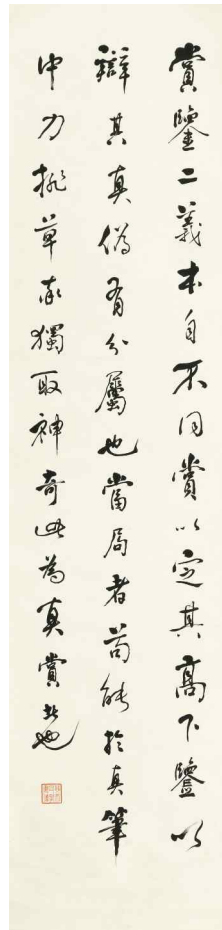 賞鑒二義本自不同賞以定其高下鑒以
辯其真偽有分屬也當局者苟能於真筆
中力排草率獨取神奇此為真賞者也